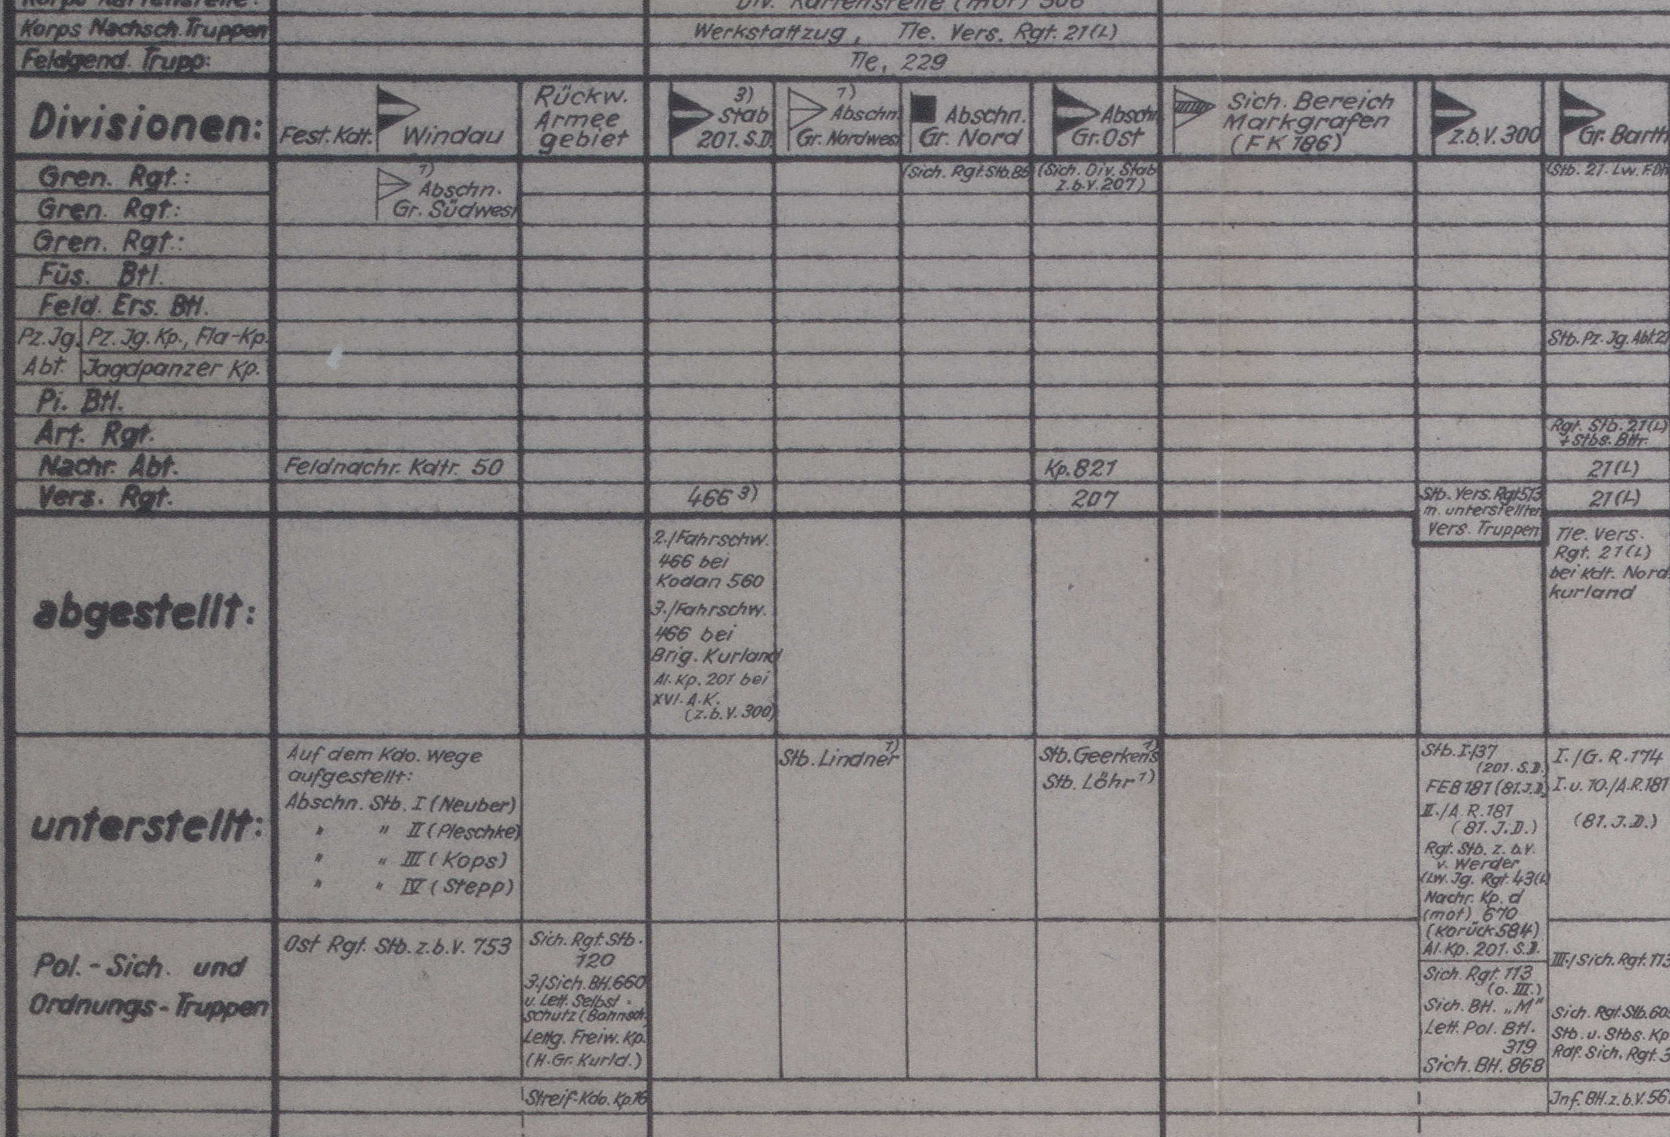 Korps Kartenstelle:
Div. Kartenstelle (mot) 306
Korps Nachsch. Truppen
Werkstattzug, Tle. Vers. Rgt. 21(L)
Feldgend. Trupp:
Tle, 229
Divisionen:
Fest. Kdt. Windau
Rückw.
Armee
gebiet
3)
Stab
201. S.D.
1)
Abschn.
Gr. Nordwest
Abschn.
Gr. Nord
Abschn
Gr. Ost
Sich. Bereich
Markgrafen
(FK 186)
z.b.V. 300
Gr. Barth
Gren. Rgt.:
1)
Abschn.
Gr. Südwest
(Sich. Rgt. Stb.
(Sich. Div. Stab
z.b.V. 207)
(Stb. 21. Lw.
Gren. Rgt.:
Gren. Rgt.:
Füs. Btl.
Feld. Ers. Btl.
Pz. Jg. Pz. Jg. Kp., Fla-Kp.
Stb. Pz. Jg. Abt. 21
Abt. Jagdpanzer Kp.
Pi. Btl.
Art. Rgt.
Rgt. Stb. 21(L)
+ Stbs. Bttr.
Nachr. Abt.
Feldnachr. Kdtr. 50
Kp. 821
21(L)
Vers. Rgt.
466 3)
207
Stb. Vers. Rgt 513
m. unterstellten
Vers. Truppen
21(L)
abgestellt:
2./Fahrschw.
466 bei
Kodan 560
3./Fahrschw.
466 bei
Brig. Kurland
Al. Kp. 201 bei
XVI. A.K.
(z.b.V. 300)
Tle. Vers.
Rgt. 21(L)
bei Kdt. Nord
kurland
unterstellt:
Auf dem Kdo. wege
aufgestellt:
Abschn. Stb. I (Neuber)
" " II (Pleschke)
" " III (Kops)
" " IV (Stepp)
Stb. Lindner 1)
Stb. Geerkens 1)
Stb. Löhr 1)
Stb. I./37
(201. S.D.)
FEB 181 (81. J.D.)
II./A.R. 181
(81. J.D.)
Rgt. Stb. z.b.V.
v. Werder
(Lw. Jg. Rgt. 43(L)
Nachr. Kp. d
(mot) 670
(Korück 584)
Al. Kp. 201. S.D.
I./G.R. 174
I. u. 10./A.R. 181
(81. J.D.)
Pol.-Sich. und
Ordnungs-Truppen
Ost Rgt. Stb. z.b.V. 753
Sich. Rgt. Stb.
120
3./Sich. Btl. 660
u. Lett. Selbst-
schutz (Bahnsch.
Lettg. Freiw. Kp.
(H. Gr. Kurld.)
Sich. Rgt. 113
(o. III.)
Sich. Btl. „M"
Lett. Pol. Btl.
319
Sich. Btl. 868
III./Sich. Rgt. 113
Sich. Rgt. Stb. 605
Stb. u. Stbs. Kp
Sich. Rgt. 3
Streif-Kdo. Kp. 16
Jnf. Btl. z.b.V. 56